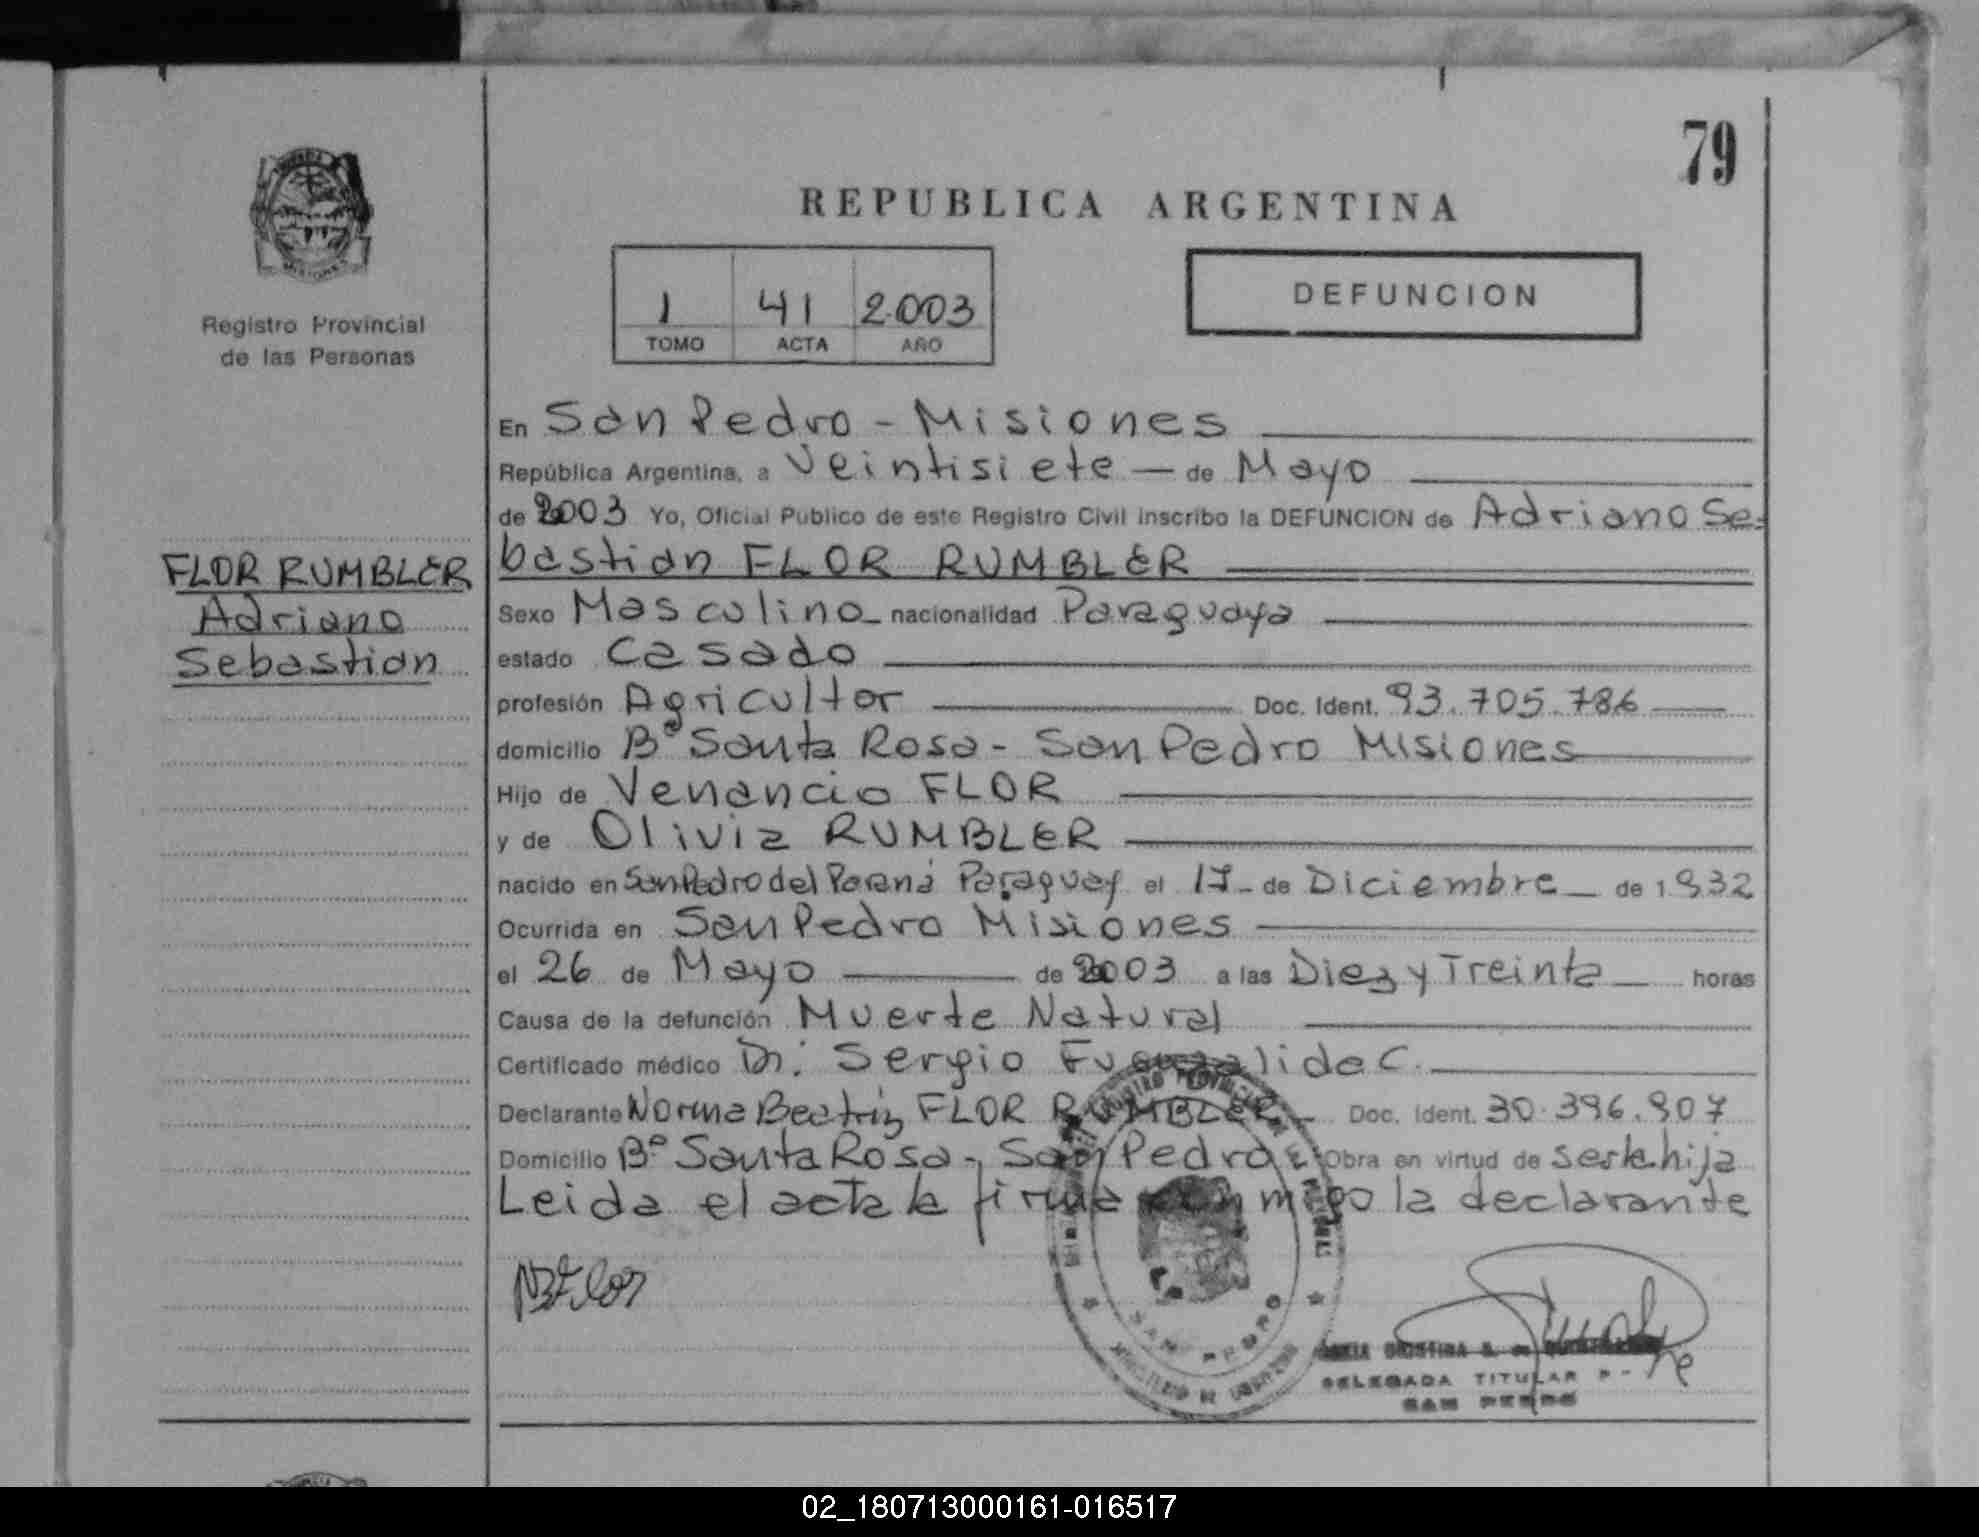 79
REPUBLICA ARGENTINA
1 41 2.003
TOMO ACTA AÑO
DEFUNCION
Registro Provincial
de las Personas
FLOR RUMBLER
Adriano
Sebastian
En San Pedro - Misiones
República Argentina, a Veintisiete — de Mayo
de 2003 Yo, Oficial Público de este Registro Civil inscribo la DEFUNCION de Adriano Se-
bastian FLOR RUMBLER
Sexo Masculino - nacionalidad Paraguaya
estado Casado
profesión Agricultor Doc. Ident. 93.705.786
domicilio Bº Santa Rosa - San Pedro Misiones
Hijo de Venancio FLOR
y de Olivia RUMBLER
nacido en San Pedro del Paraná Paraguay el 17 - de Diciembre - de 1932
Ocurrida en San Pedro Misiones
el 26 de Mayo de 2003 a las Diez y Treinta horas
Causa de la defunción Muerte Natural
Certificado médico Dr. Sergio Fuenzalida C.
Declarante Norma Beatriz FLOR RUMBLER Doc. Ident. 30.396.907
Domicilio Bº Santa Rosa - San Pedro Obra en virtud de ser la hija
Leida el acta la firma conmigo la declarante
NBFlor
SAN PEDRO
DELEGADA TITULAR
SAN PEDRO
02_180713000161-016517